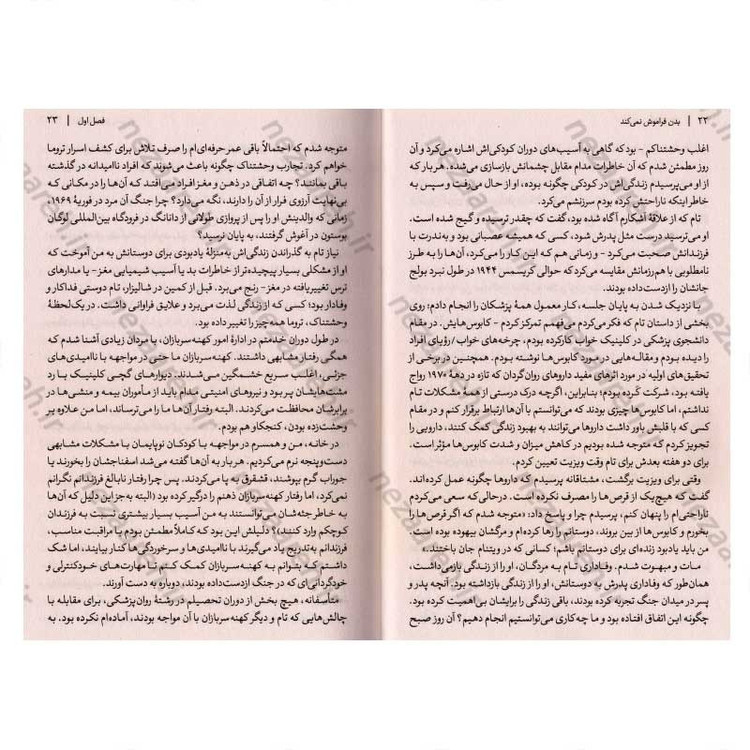 ۲۲ | بدن فراموش نمی‌کند
اغلب وحشتناکم - بود که گاهی به آسیب‌های دوران کودکی‌اش اشاره می‌کرد و آن
روز مطمئن شدم که آن خاطرات مدام مقابل چشمانش بازسازی می‌شده. هر بار که
از او می‌پرسیدم زندگی‌اش در کودکی چگونه بوده، او از حال می‌رفت و سپس به
خاطر اینکه ناراحتش کرده بودم سرزنشم می‌کرد.
تام که از علاقهٔ آشکارم آگاه شده بود، گفت که چقدر ترسیده و گیج شده است.
او می‌ترسید درست مثل پدرش شود، کسی که همیشه عصبانی بود و به‌ندرت با
فرزندانش صحبت می‌کرد - و زمانی هم که این کار را می‌کرد، آن‌ها را به طرز
نامطلوبی با هم‌رزمانش مقایسه می‌کرد که حوالی کریسمس ۱۹۴۴ در طول نبرد بولج
جانشان را ازدست‌داده بودند.
با نزدیک شدن به پایان جلسه، کار معمول همهٔ پزشکان را انجام دادم: روی
بخشی از داستان تام که فکر می‌کردم می‌فهمم تمرکز کردم - کابوس‌هایش. در مقام
دانشجوی پزشکی در کلینیک خواب کار کرده بودم، چرخه‌های خواب/رؤیای افراد
را دیده بودم و مقاله‌هایی در مورد کابوس‌ها نوشته بودم. همچنین در برخی از
تحقیق‌های اولیه در مورد اثرهای مفید داروهای روان‌گردان که تازه در دههٔ ۱۹۷۰ رواج
یافته بود، شرکت کرده بودم؛ بنابراین، اگرچه درک درستی از همهٔ مشکلات تام
نداشتم، اما کابوس‌ها چیزی بودند که می‌توانستم با آن‌ها ارتباط برقرار کنم و در مقام
کسی که با قلبش باور داشت داروها می‌توانند به بهبود زندگی کمک کنند، دارویی را
تجویز کردم که متوجه شده بودیم در کاهش میزان و شدت کابوس‌ها مؤثر است.
برای دو هفته بعدش برای تام وقت ویزیت تعیین کردم.
وقتی برای ویزیت برگشت، مشتاقانه پرسیدم که داروها چگونه عمل کرده‌اند.
گفت که هیچ‌یک از قرص‌ها را مصرف نکرده است. درحالی‌که سعی می‌کردم
ناراحتی‌ام را پنهان کنم، پرسیدم چرا و پاسخ داد: «متوجه شدم که اگر قرص‌ها را
بخورم و کابوس‌ها از بین بروند، دوستانم را رها کرده‌ام و مرگشان بیهوده بوده است.
من باید یادبود زنده‌ای برای دوستانم باشم؛ کسانی که در ویتنام جان باختند.»
مات و مبهوت شدم. وفاداری تام به مردگان، او را از زندگی بازمی‌داشت،
همان‌طور که وفاداری پدرش به دوستانش، او را از زندگی بازداشته بود. آنچه پدر و
پسر در میدان جنگ تجربه کرده بودند، باقی زندگی را برایشان بی‌اهمیت کرده بود.
چگونه این اتفاق افتاده بود و ما چه‌کاری می‌توانستیم انجام دهیم؟ آن روز صبح
فصل اول | ۲۳
متوجه شدم که احتمالاً باقی عمر حرفه‌ای‌ام را صرف تلاش برای کشف اسرار تروما
خواهم کرد. تجارب وحشتناک چگونه باعث می‌شوند که افراد ناامیدانه در گذشته
باقی بمانند؟ چه اتفاقی در ذهن و مغز افراد می‌افتد که آن‌ها را در مکانی که
بی‌نهایت آرزوی فرار از آن را دارند، نگه می‌دارد؟ چرا جنگ آن مرد در فوریهٔ ۱۹۶۹،
زمانی که والدینش او را پس از پروازی طولانی از دانانگ در فرودگاه بین‌المللی لوگان
بوستون در آغوش گرفتند، به پایان نرسید؟
نیاز تام به گذراندن زندگی‌اش به‌منزلهٔ یادبودی برای دوستانش به من آموخت که
او از مشکلی بسیار پیچیده‌تر از خاطرات بد یا آسیب شیمیایی مغز - یا مدارهای
ترس تغییریافته در مغز - رنج می‌برد. قبل از کمین در شالیزار، تام دوستی فداکار و
وفادار بود؛ کسی که از زندگی لذت می‌برد و علایق فراوانی داشت. در یک لحظهٔ
وحشتناک، تروما همه‌چیز را تغییر داده بود.
در طول دوران خدمتم در ادارهٔ امور کهنه‌سربازان، با مردان زیادی آشنا شدم که
همگی رفتار مشابهی داشتند. کهنه‌سربازان ما حتی در مواجهه با ناامیدی‌های
جزئی، اغلب سریع خشمگین می‌شدند. دیوارهای گچی کلینیک با رد
مشت‌هایشان پر بود و نیروهای امنیتی مدام باید از مأموران بیمه و منشی‌ها در
برابرشان محافظت می‌کردند. البته رفتار آن‌ها ما را می‌ترساند، اما من علاوه بر
وحشت‌زده بودن، کنجکاو هم بودم.
در خانه، من و همسرم در مواجهه با کودکان نوپایمان با مشکلات مشابهی
دست‌وپنجه نرم می‌کردیم. هر بار به آن‌ها گفته می‌شد اسفناجشان را بخورند یا
جوراب گرم بپوشند، قشقرق به پا می‌کردند. پس چرا رفتار نابالغ فرزندانم نگرانم
نمی‌کرد، اما رفتار کهنه‌سربازان ذهنم را درگیر کرده بود (البته به‌جز این دلیل که آن‌ها
به خاطر جثه‌شان می‌توانستند به من آسیب بسیار بیشتری نسبت به فرزندان
کوچکم وارد کنند)؟ دلیلش این بود که کاملاً مطمئن بودم با مراقبت مناسب،
فرزندانم به‌تدریج یاد می‌گیرند با ناامیدی‌ها و سرخوردگی‌ها کنار بیایند، اما شک
داشتم که بتوانم به کهنه‌سربازان کمک کنم تا مهارت‌های خودکنترلی و
خودگردانی‌ای که در جنگ ازدست‌داده بودند، دوباره به دست آورند.
متأسفانه، هیچ بخش از دوران تحصیلم در رشتهٔ روان‌پزشکی، برای مقابله با
چالش‌هایی که تام و دیگر کهنه‌سربازان با آن مواجه بودند، آماده‌ام نکرده بود. به